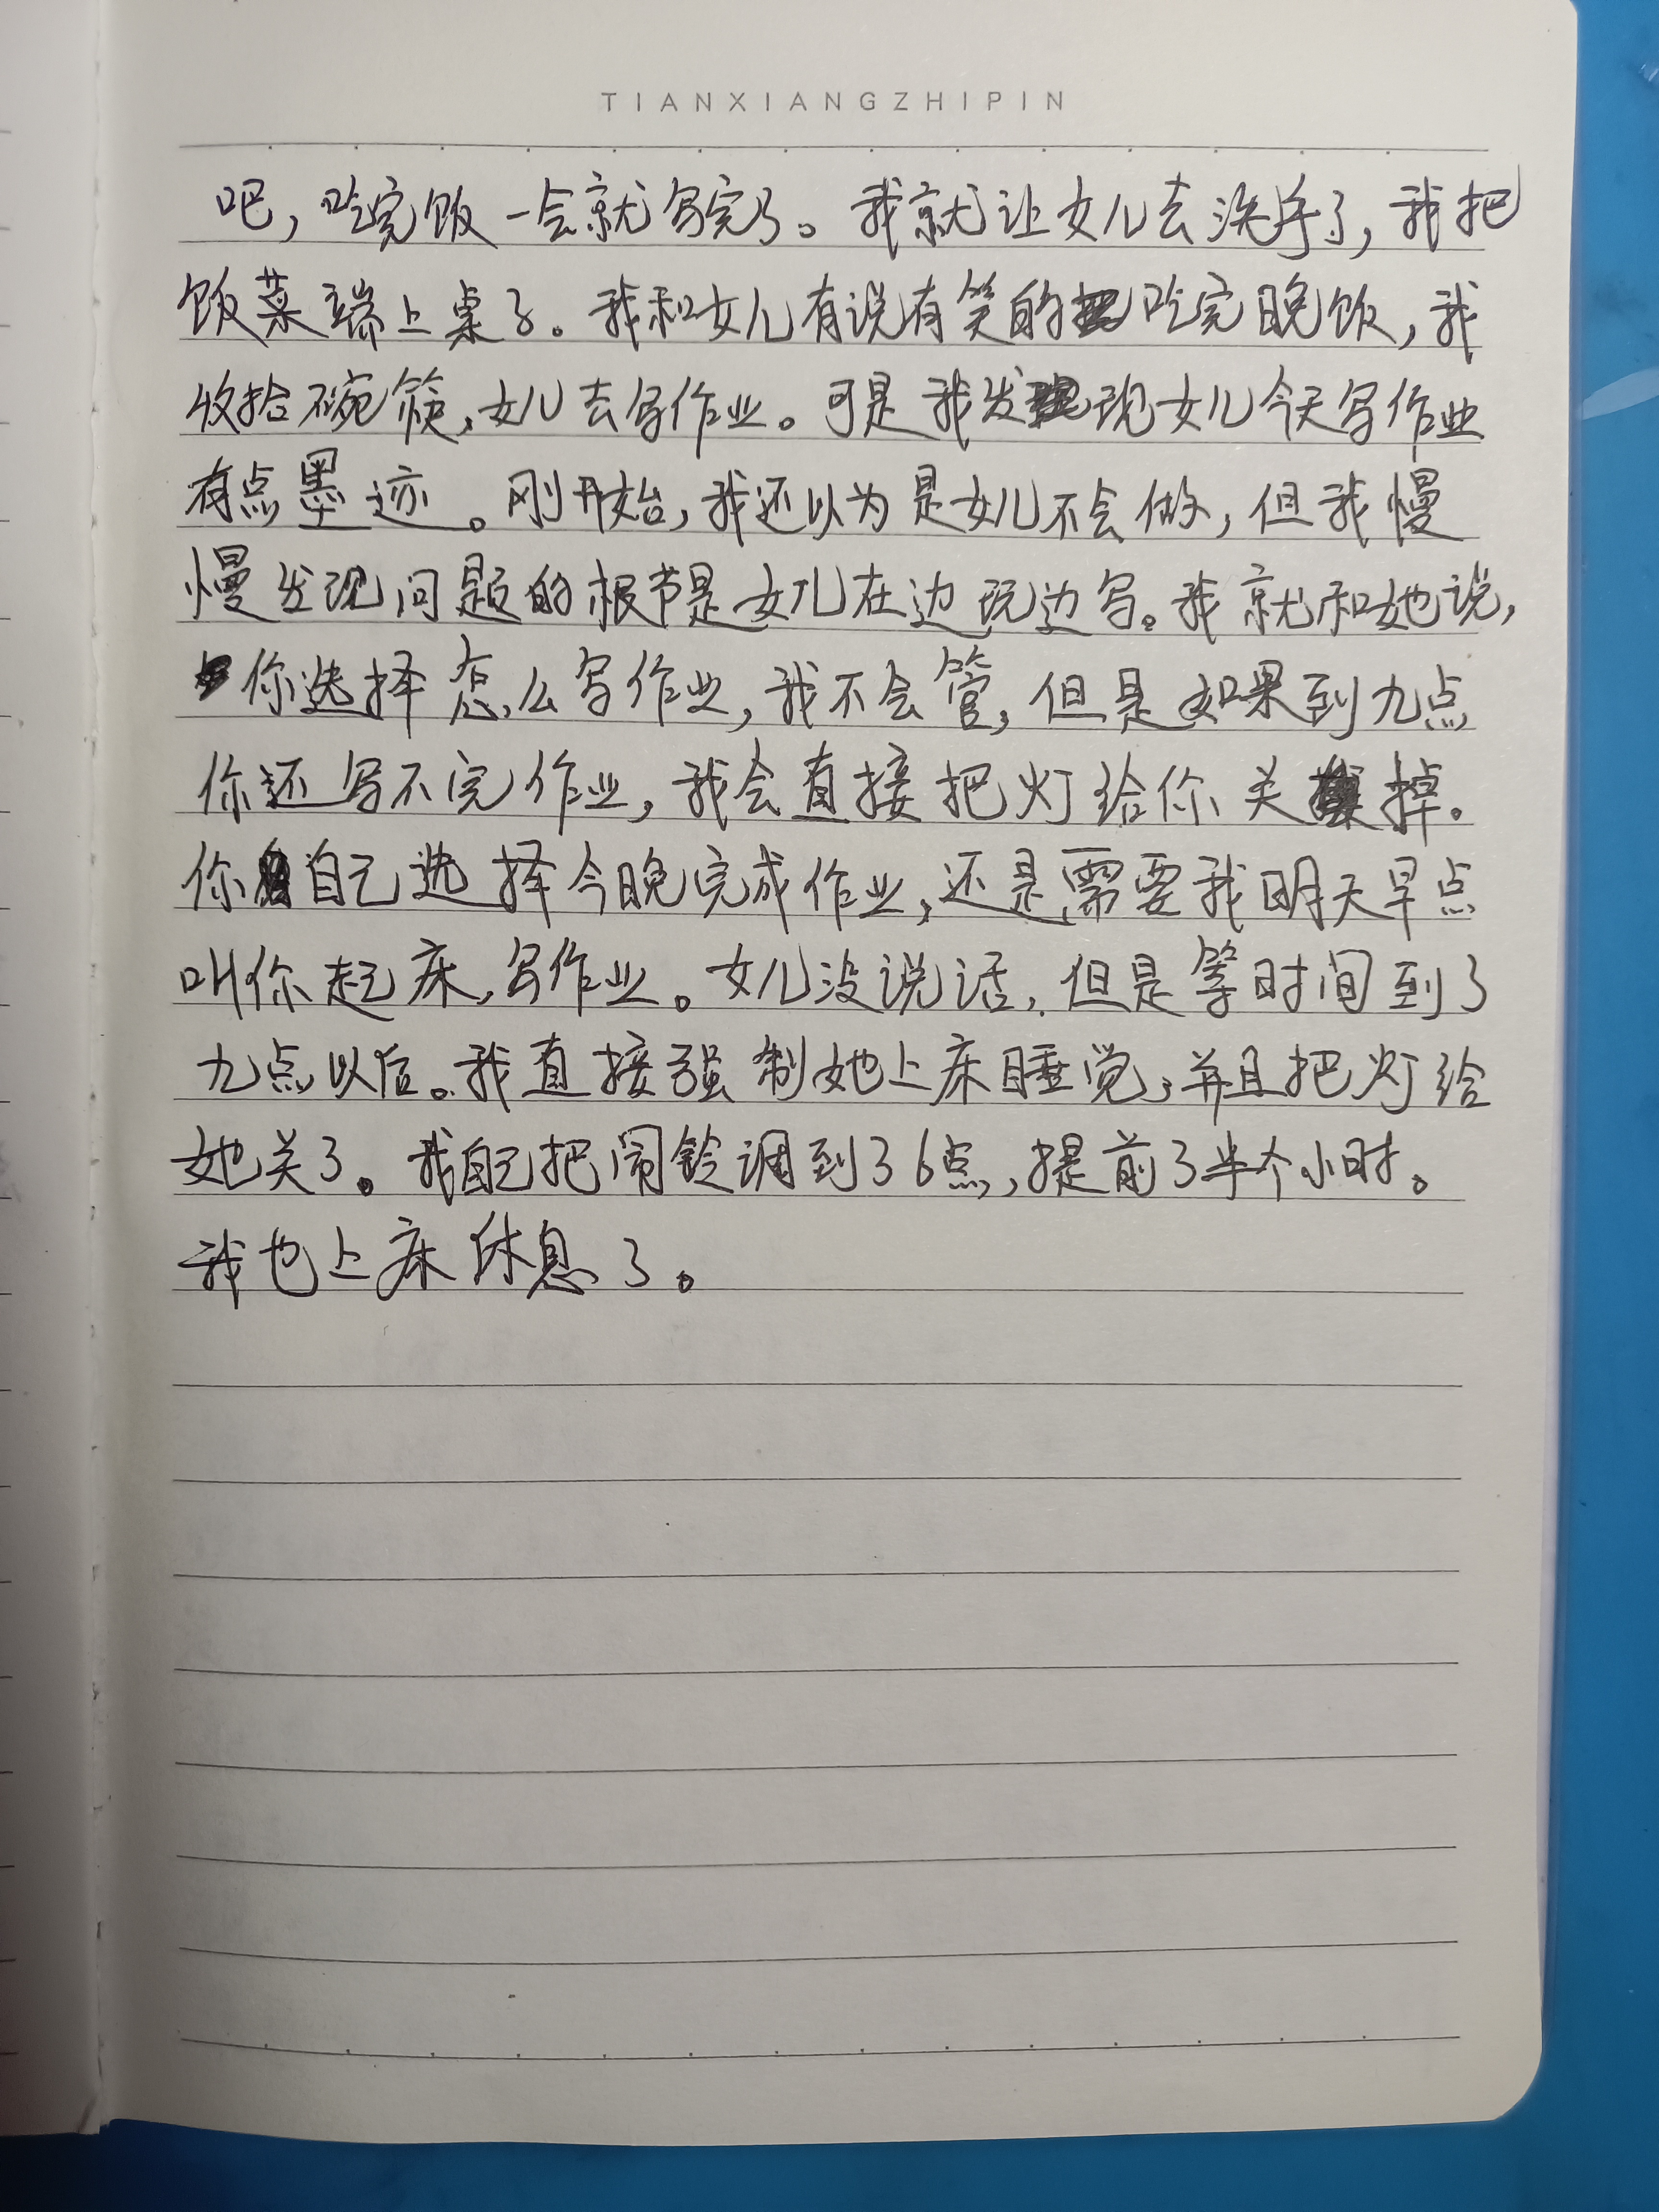 TIANXIANGZHIPIN
吧,吃完饭一会就写完了。我就让女儿去洗手了,我把
饭菜端上桌了。我和女儿有说有笑的吃完晚饭,我
收拾碗筷,女儿去写作业。可是我发现女儿今天写作业
有点墨迹。刚开始,我还以为是女儿不会做,但我慢
慢发现问题的根节是女儿在边玩边写。我就和她说,
你选择怎么写作业,我不会管,但是如果到九点
你还写不完作业,我会直接把灯给你关掉。
你自己选择今晚完成作业,还是需要我明天早点
叫你起床,写作业。女儿没说话,但是等时间到了
九点以后。我直接强制她上床睡觉,并且把灯给
她关了。我自己把闹铃调到了6点,提前了半个小时。
我也上床休息了。